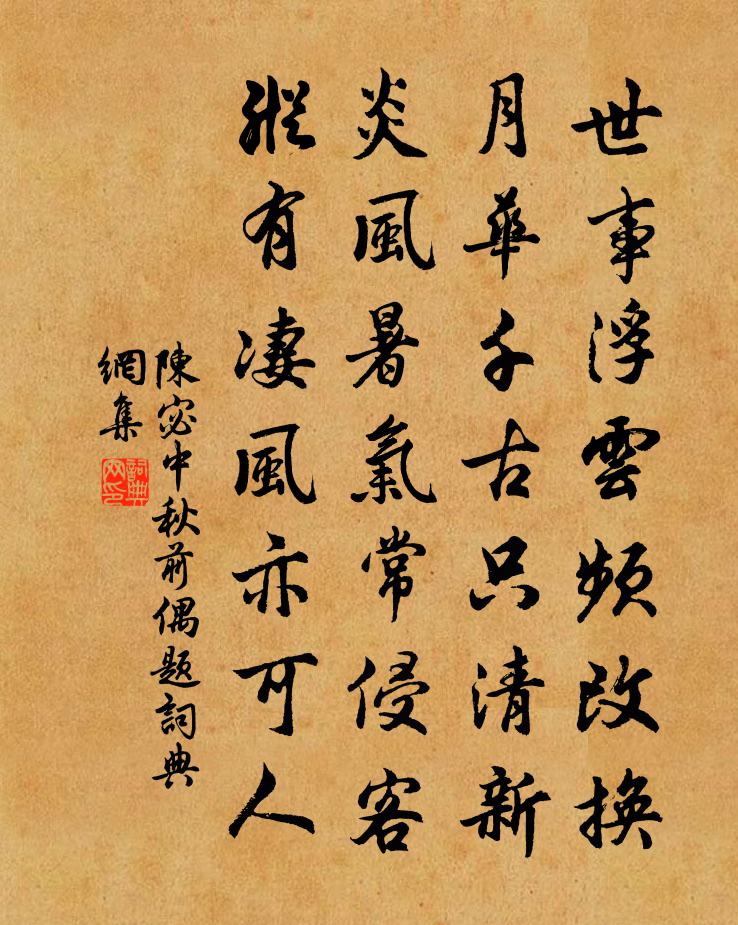 世事浮雲頻改換
月華千古只清新
炎風暑氣常侵客
縱有凄風亦可人
陳宓中秋前偶題詞典
網集
詞典網印